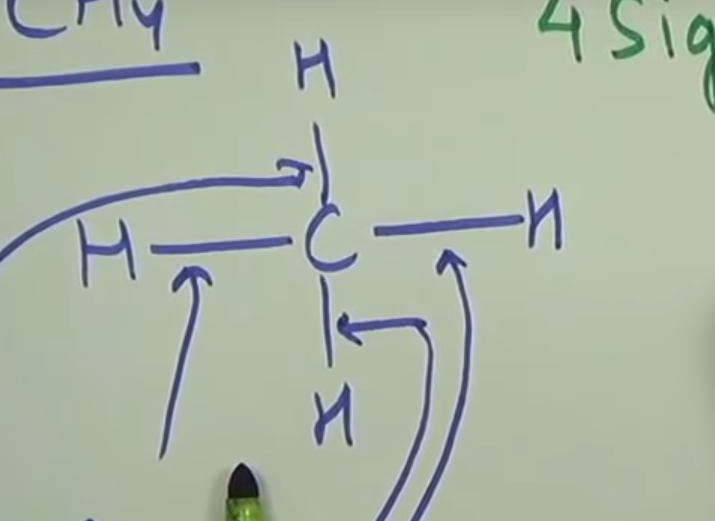 CH4
4 Sig
H
H C H
H